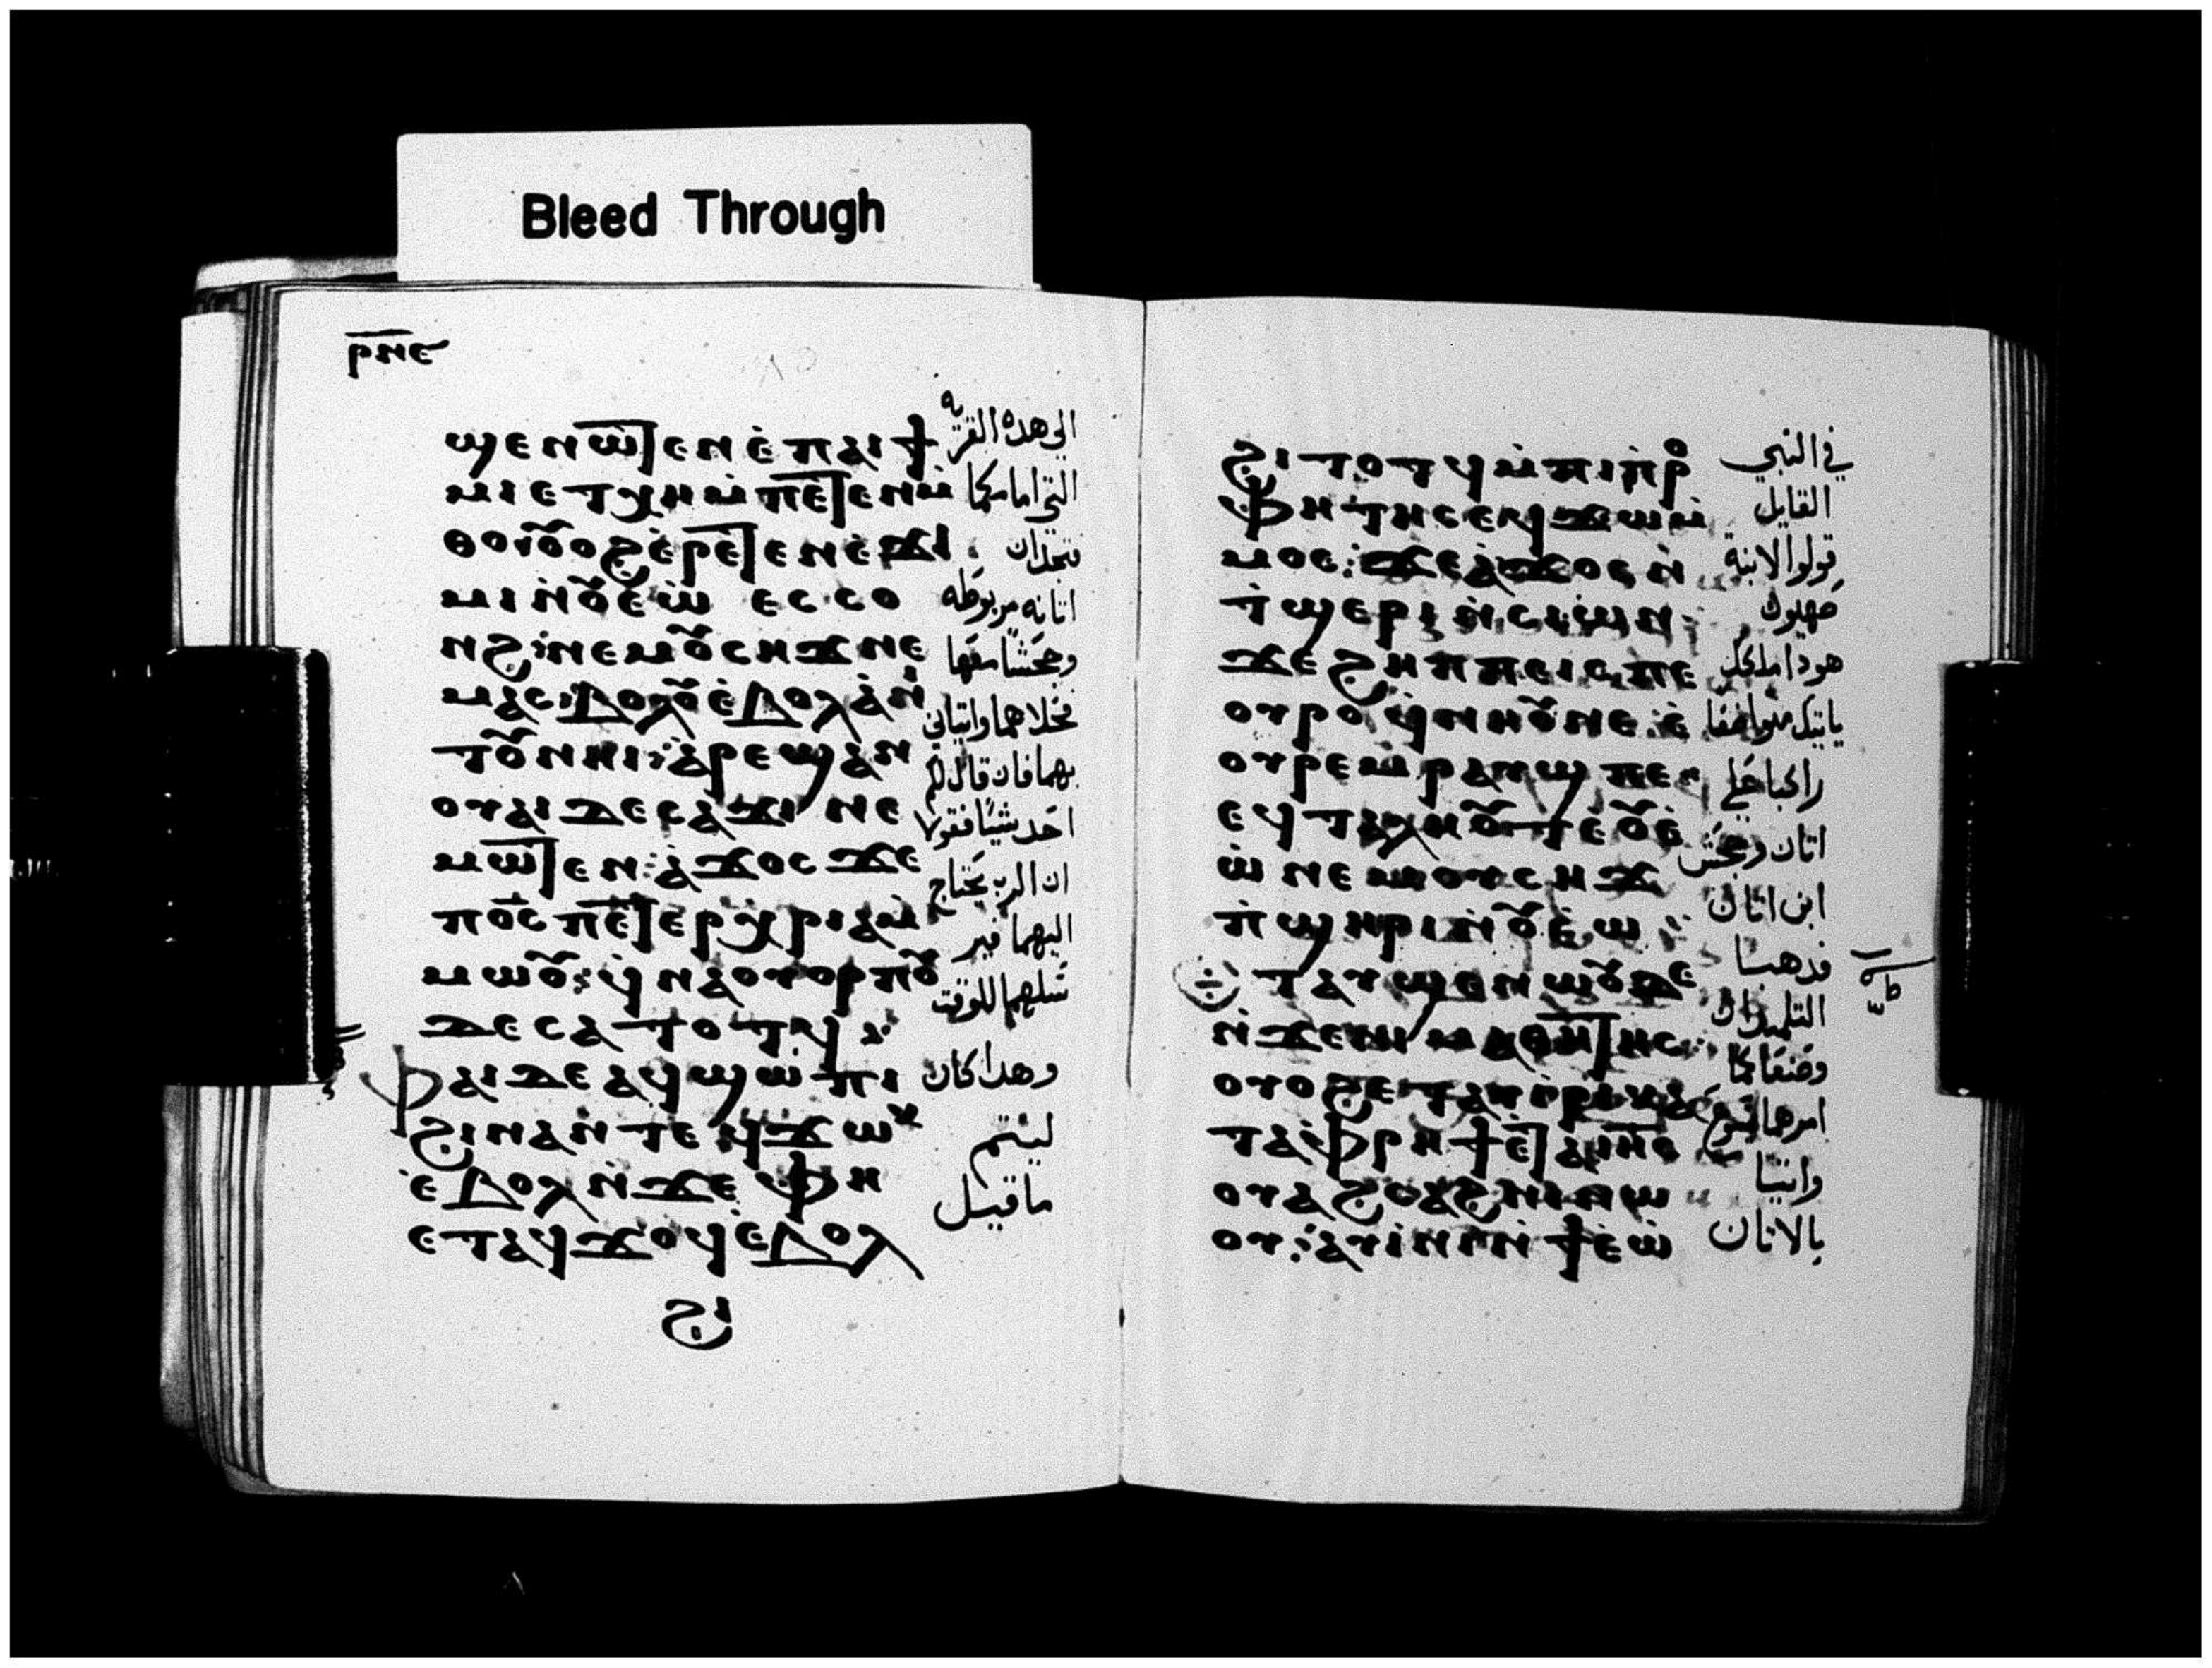 Bleed Through
ⲣⲛⲉ
ϣⲉⲛⲱⲧⲉⲛ ⲉⲡⲁⲓϯ الى هذه القريه
ⲙⲓ ⲉⲧⲭⲏ ⲙⲡⲉⲧⲉⲛⲙ التي امامكما
ⲑⲟ ⲟⲩⲟϩ ⲉⲣⲉⲧⲉⲛⲉϫⲓ فتجدان
ⲙⲓ ⲛⲟⲩⲉⲱ ⲉⲥⲥⲟ اتانه مربوطه
ⲛϩ ⲛⲉⲙ ⲟⲩⲥⲏϫ ⲛⲉ وجحشًا معها
ⲙⲁⲥ: ⲃⲟⲗⲟⲩ ⲉⲃⲟⲗ ⲁⲛⲓ فحلاهما واتياني
ⲧⲟⲩ ⲛⲏⲓ: ⲁⲣⲉϣⲁⲛ بهما فان قال لكم
ⲟⲩⲁⲓ ⲇⲉ ⲥⲁϫⲓ ⲛⲉ احد شيئًا فقولا
ⲙⲱⲧⲉⲛ: ⲁϫⲟⲥ ϫⲉ ان الرب يحتاج
ⲡⲟⲥ ⲡⲉⲧⲉⲣⲭⲣⲓⲁ ⲙ اليهما فير
ⲙⲱⲟⲩ: ϥⲛⲁⲟⲩⲟⲣⲡⲟⲩ سلهما للوقت
ⲇⲉ ⲥⲁⲧⲟⲧϥ:
ⲫⲁⲓ ⲇⲉ ⲁϥϣⲱⲡⲓ وهذا كان
ϩⲓⲛⲁ ⲛⲧⲉϥϫⲱⲕ ليتم
ⲉⲃⲟⲗ ⲛϫⲉ ⲫⲏ ما قيل
ⲉⲧⲁϥϫⲟϥ ⲉⲃⲟⲗ
ϩⲓ
ϩⲓⲧⲟⲧϥ ⲙⲡⲓⲡⲣⲟ في النبي
ⲫⲏⲧⲏⲥ ⲉϥϫⲱⲙ القايل
ⲙⲟⲥ: ϫⲉ ⲁϫⲟⲥ ⲛ قولوا لابنة
ⲧϣⲉⲣⲓ ⲛⲥⲓⲱⲛ: صهيون
ϫⲉ ϩⲏⲡⲡⲉ ⲓⲥ ⲡⲉ هوذا ملكك
ⲟⲩⲣⲟ ϥⲛⲏⲟⲩ ⲛⲉ: ⲉ ياتيك متواضعا
ⲟⲩⲣⲉⲙⲣⲁⲩϣ ⲡⲉ راكبا على
ⲉϥⲧⲁⲗⲏⲟⲩⲧ ⲉⲟⲩⲉ اتان وجحش
ⲱ ⲛⲉⲙ ⲟⲩⲥⲏϫ ابن اتان
ⲡϣⲏⲣⲓ ⲛⲟⲩⲉⲱ: فذهبا
ⲉⲧⲁⲩϣⲉⲛⲱⲟⲩ ⲇⲉ التلميذان
ⲛϫⲉ ⲛⲓⲙⲁⲑⲏⲧⲏⲥ: وصنعا كما
ⲟⲩⲟϩ ⲉⲧⲁⲩⲓⲣⲓ ⲕⲁ امرهما يسوع
ⲧⲁ ⲫⲣⲏϯ ⲉⲧⲁ ⲓⲏⲥ واتيا
ⲟⲩⲁϩⲥⲁϩⲛⲓ ⲛⲱ بالاتان
ⲟⲩ: ⲁⲩⲓⲛⲓ ⲛϯⲉⲱ